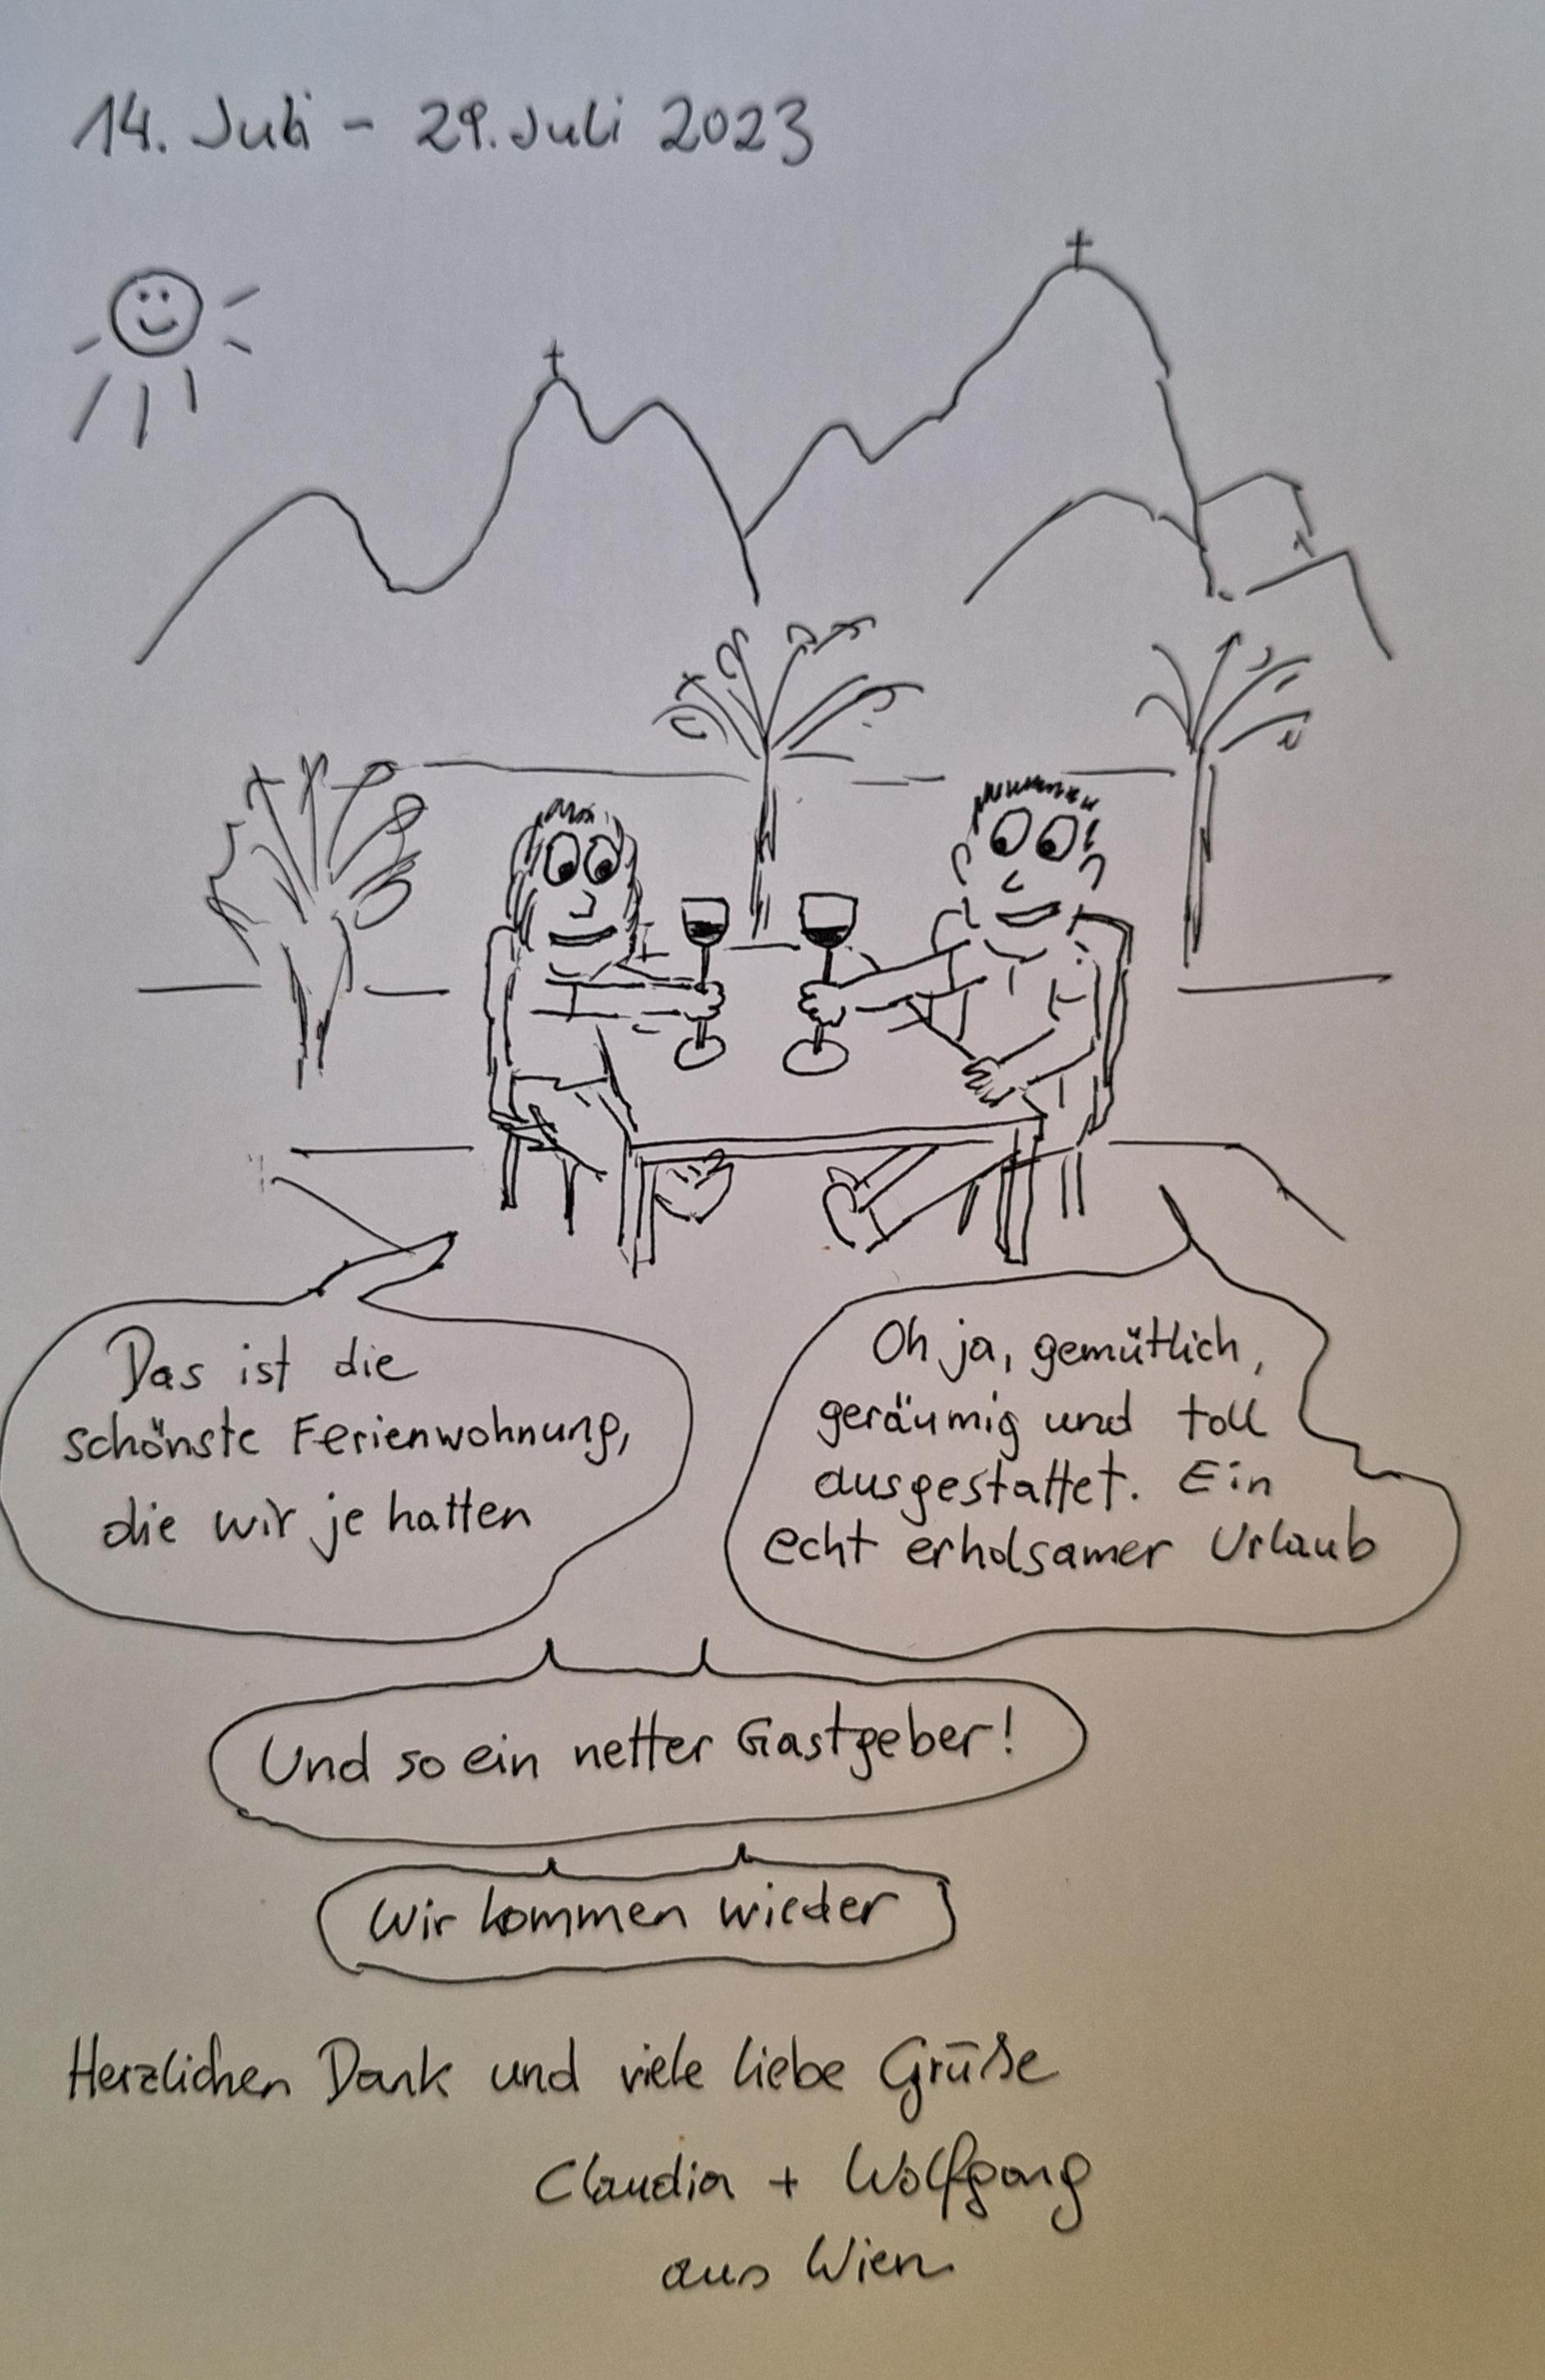 14. Juli - 29. Juli 2023
Das ist die
schönste Ferienwohnung,
die wir je hatten
Oh ja, gemütlich,
geräumig und toll
ausgestattet. Ein
echt erholsamer Urlaub
Und so ein netter Gastgeber!
Wir kommen wieder
Herzlichen Dank und viele liebe Grüße
Claudia + Wolfgang
aus Wien